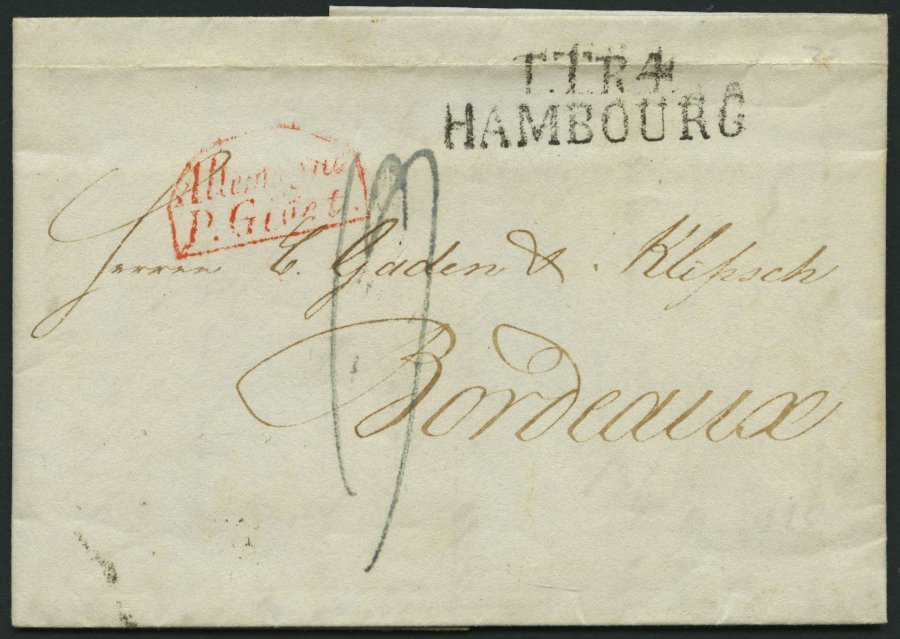 T.T.R.4.
HAMBOURG
Allemagne
P. Givet.
Herren C. Gaden & . Klipsch
Bordeaux